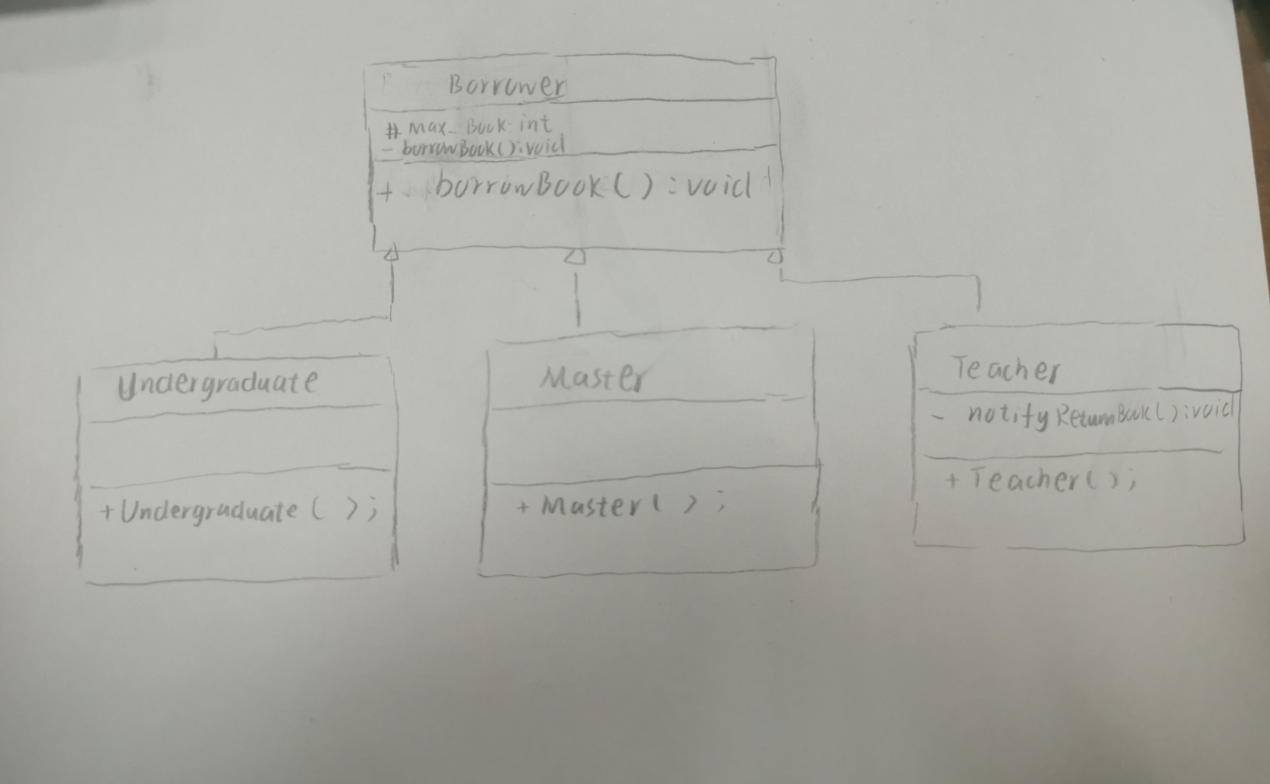 Borrower
# max_Book int
- borrowBook():void
+ borrowBook() : void
Undergraduate
+Undergraduate ( );
Master
+ Master( ) ;
Teacher
- notifyReturnBook():void
+ Teacher();